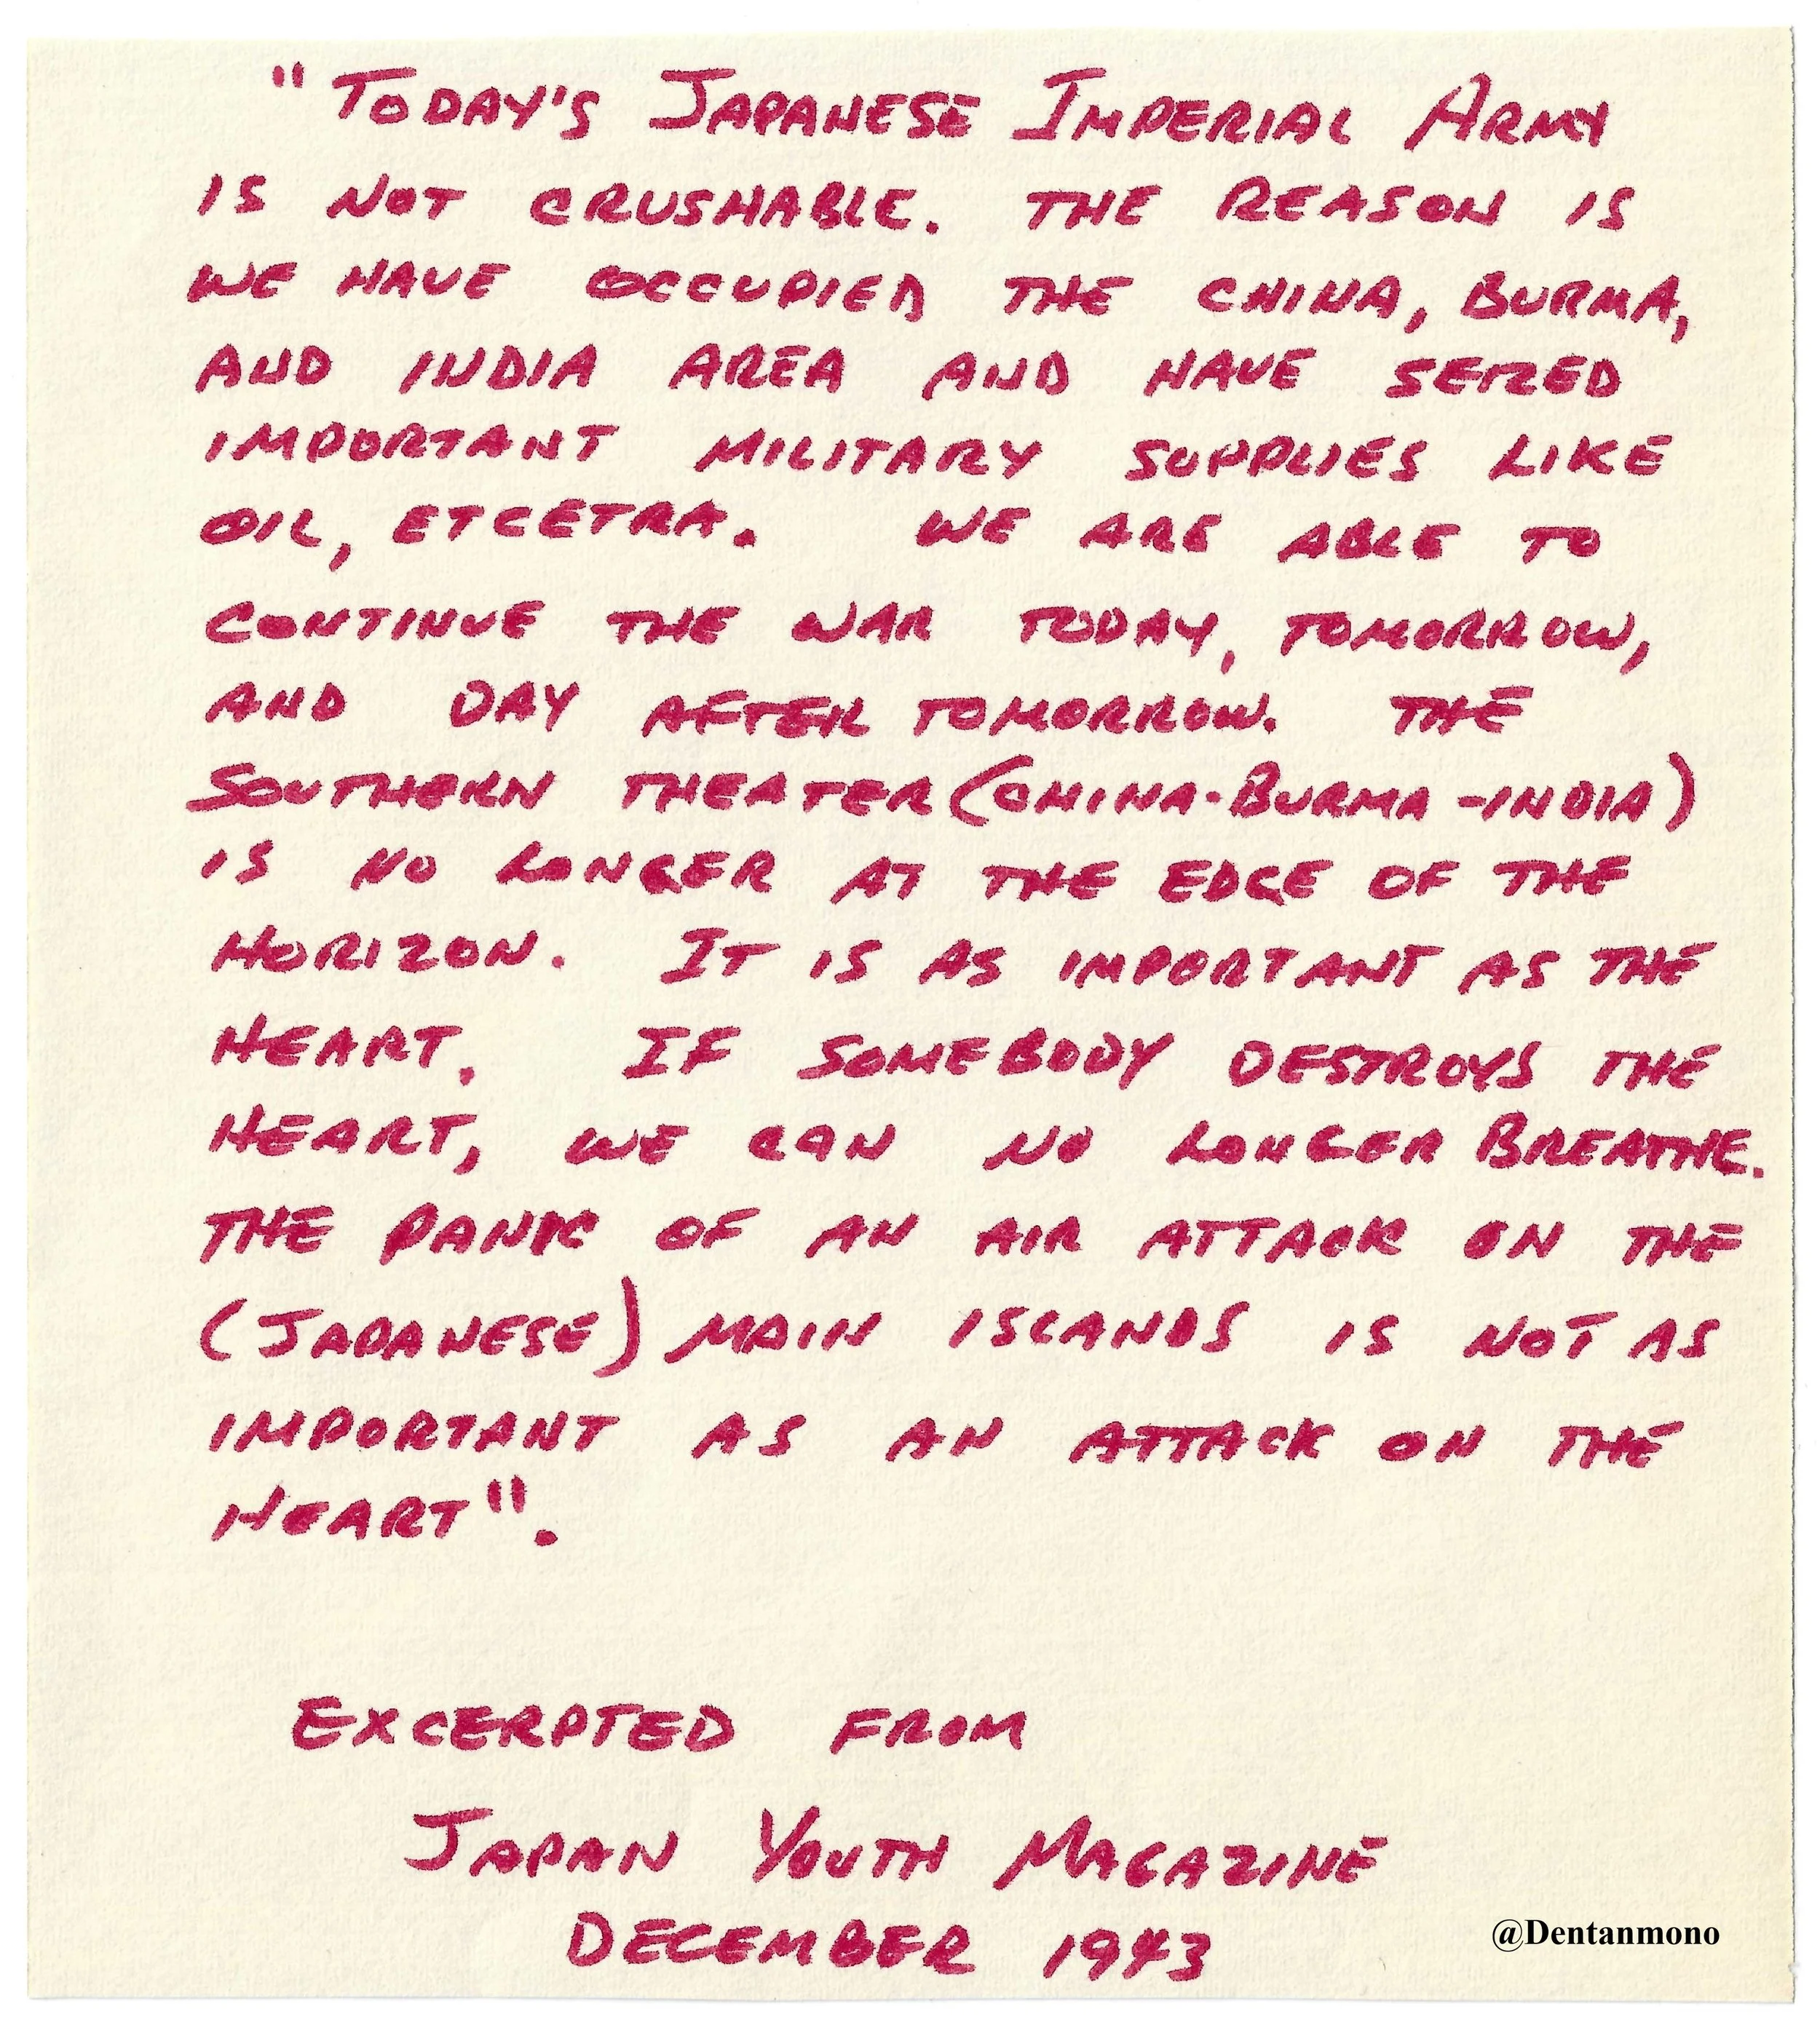 "TODAY'S JAPANESE IMPERIAL ARMY
IS NOT CRUSHABLE. THE REASON IS
WE HAVE OCCUPIED THE CHINA, BURMA,
AND INDIA AREA AND HAVE SEIZED
IMPORTANT MILITARY SUPPLIES LIKE
OIL, ETCETRA. WE ARE ABLE TO
CONTINUE THE WAR TODAY, TOMORROW,
AND DAY AFTER TOMORROW. THE
SOUTHERN THEATER (CHINA-BURMA-INDIA)
IS NO LONGER AT THE EDGE OF THE
HORIZON. IT IS AS IMPORTANT AS THE
HEART. IF SOMEBODY DESTROYS THE
HEART, WE CAN NO LONGER BREATHE.
THE PANIC OF AN AIR ATTACK ON THE
(JAPANESE) MAIN ISLANDS IS NOT AS
IMPORTANT AS AN ATTACK ON THE
HEART".
EXCERPTED FROM
JAPAN YOUTH MAGAZINE
DECEMBER 1943
@Dentanmono